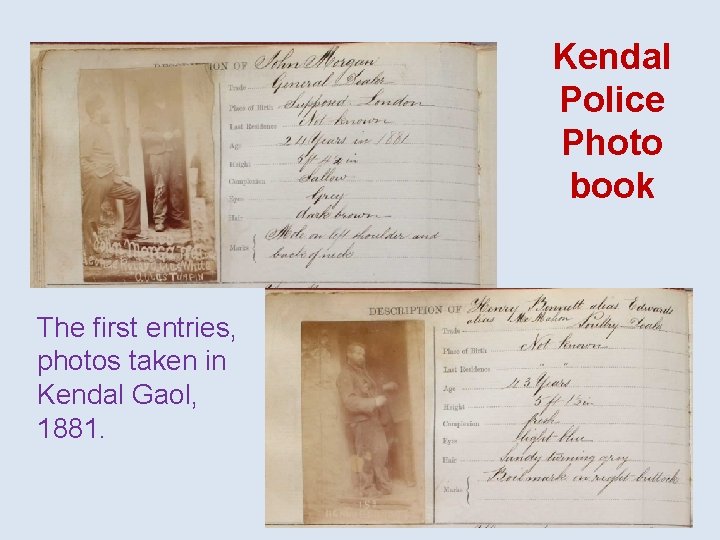 Kendal
Police
Photo
book
DESCRIPTION OF John Morgan
Trade General Dealer
Place of Birth Supposed London
Last Residence Not known
Age 24 Years in 1881
Height 5 ft 4½ in
Complexion Sallow
Eyes Grey
Hair dark brown
Marks Mole on left shoulder and
back of neck
John Morgan
White
Alias TURPIN
The first entries,
photos taken in
Kendal Gaol,
1881.
DESCRIPTION OF Henry Bennett alias Edwards
alias McMahon
Trade Poultry Dealer
Place of Birth Not known
Last Residence " "
Age 43 Years
Height 5 ft 1½ in
Complexion fresh
Eyes light blue
Hair Sandy turning grey
Marks Boil mark on right buttock